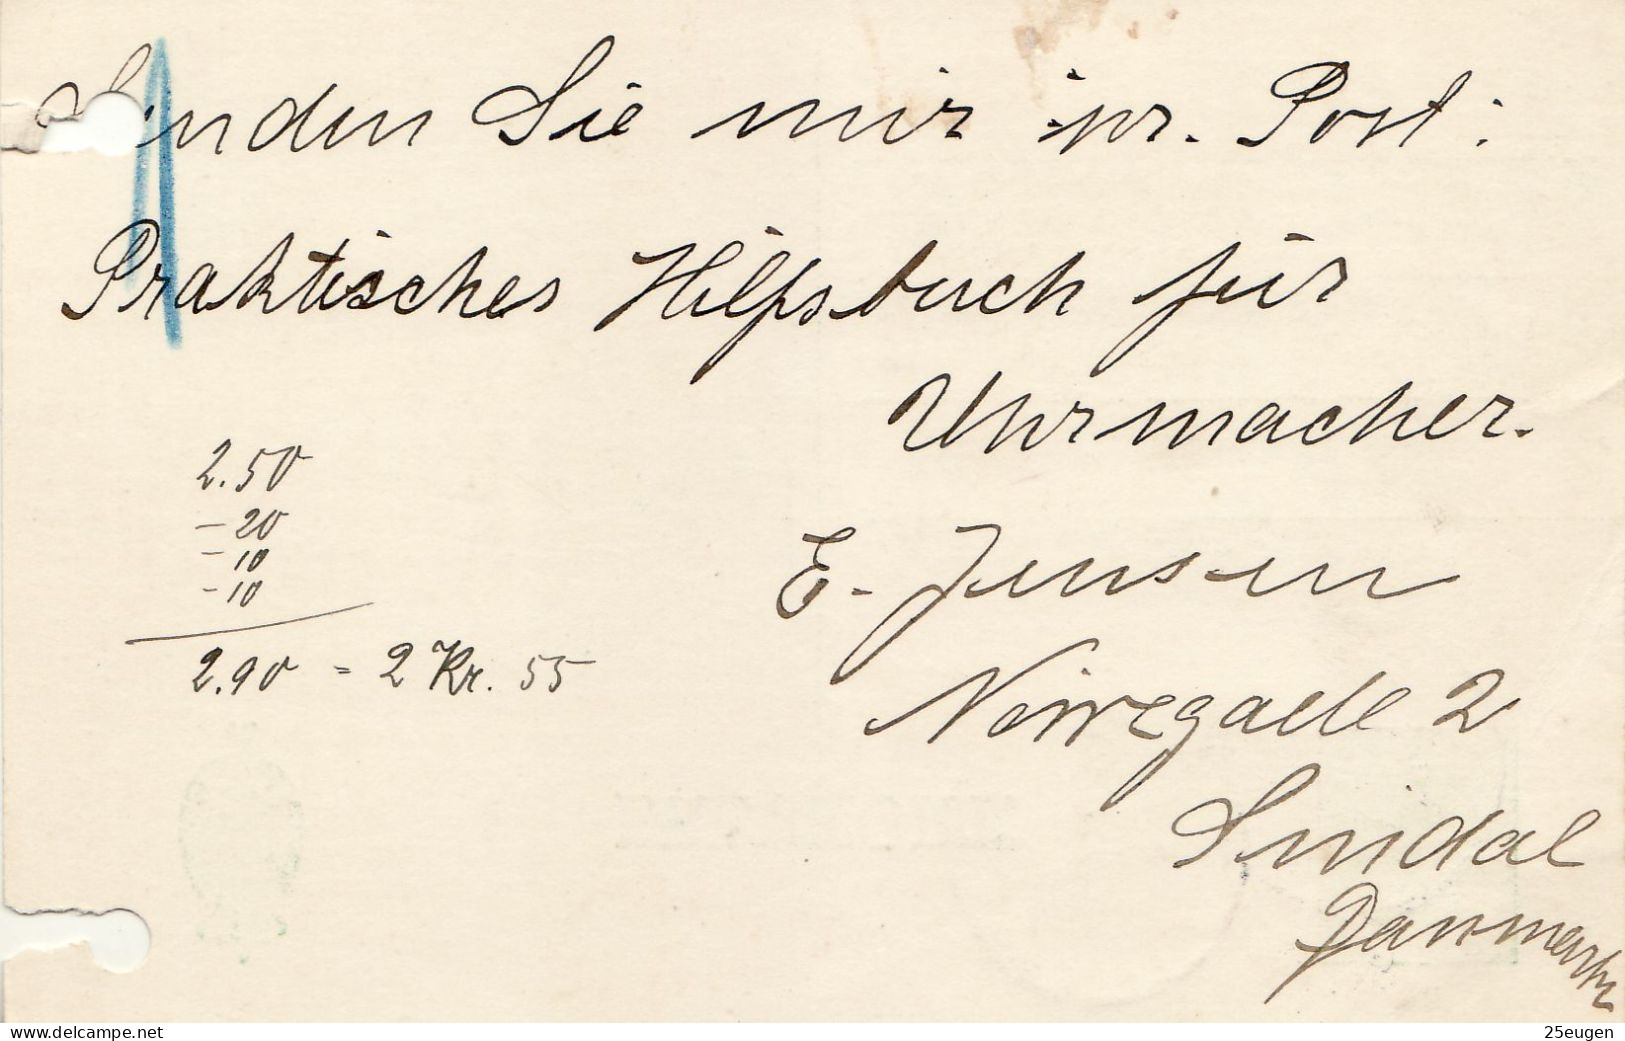 Senden Sie mir pr. Post:
Praktisches Hilfsbuch für
Uhrmacher.
2.50
- 20
- 10
- 10
2.90 = 2 Kr. 55
E. Jensen
2
Sindal
Danmark
www.delcampe.net
25eugen